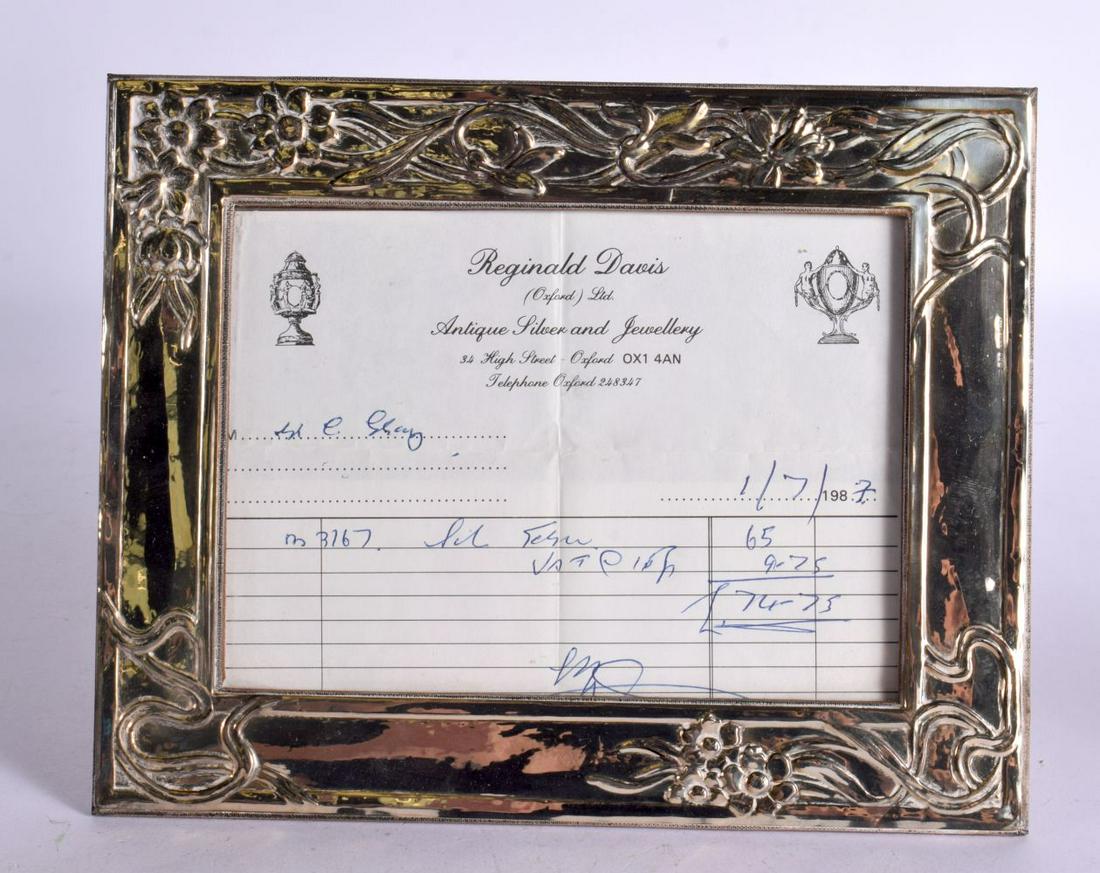 Reginald Davis
(Oxford) Ltd.
Antique Silver and Jewellery
34 High Street - Oxford OX1 4AN
Telephone Oxford 248347
M
1/7/1987
3167. 65
VAT @ 15% 9-75
£74-75